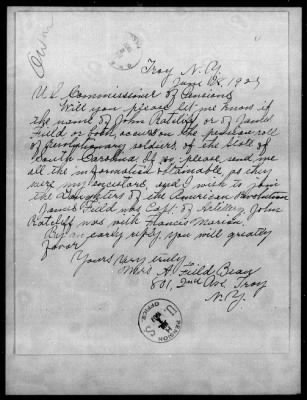 Troy N.Y.
June
U.S. Commissioner of Pensions
Will you please let me know if
the name of John Ratcliff, or of James
Field or both, occurs on the pension roll
of Revolutionary soldiers of the State of
South Carolina. If so please send me
all the information obtainable, as they
were my ancestors, and I wish to join
the Daughters of the American Revolution
James Field was Capt. of Artillery, John
Ratcliff was with Francis Marion.
By an early reply, you will greatly
favor
Yours very truly
Mrs. A. Field
801, 2nd Ave, Troy
N.Y.
U S
PENSION
OFFICE